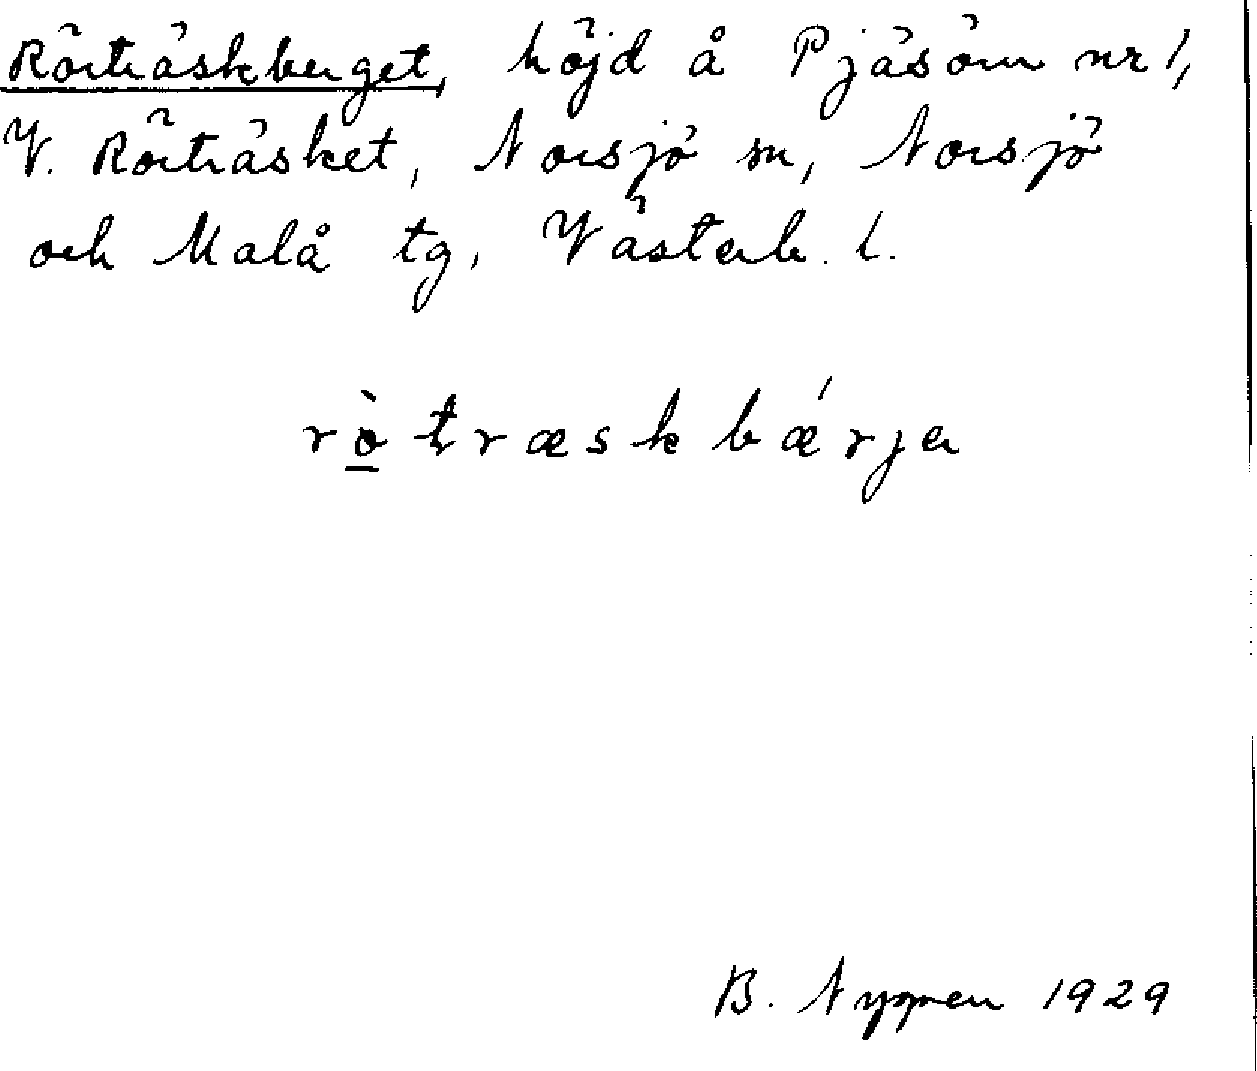 Rörträskberget, höjd å Pjäsörn nr 1,
V. Rörträsket, Norsjö sn, Norsjö
och Malå tg, Västerb. l.
rò̠træskbǽrja
B. Nygren 1929